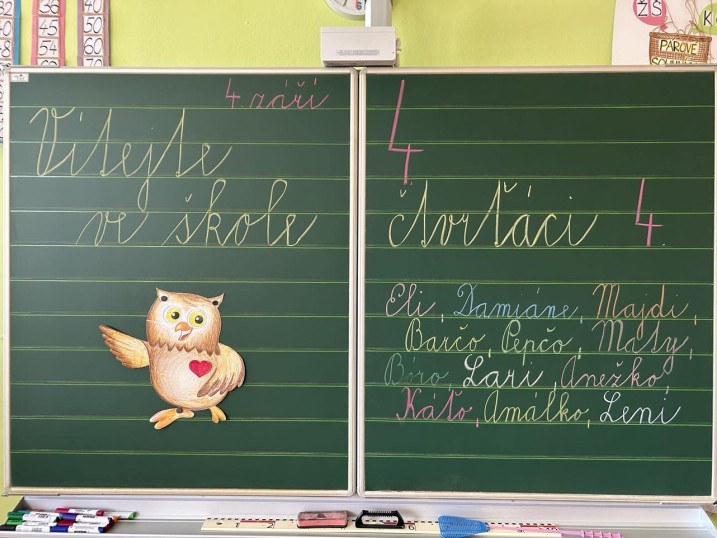 4. září
Vítejte
ve škole
4
čtvrťáci 4.
Eli, Damiáne, Majdi,
Barčo, Pepčo, Maty,
Bóro, Lari, Anežko,
Káťo, Amálko, Leni
32
36
40
36
45
54
40
50
60
70
ZŠ
PÁROVÉ